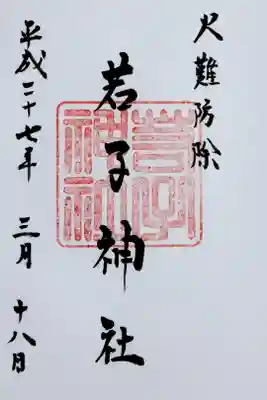 火難防除
若子神社
平成二十七年 三月 十八日